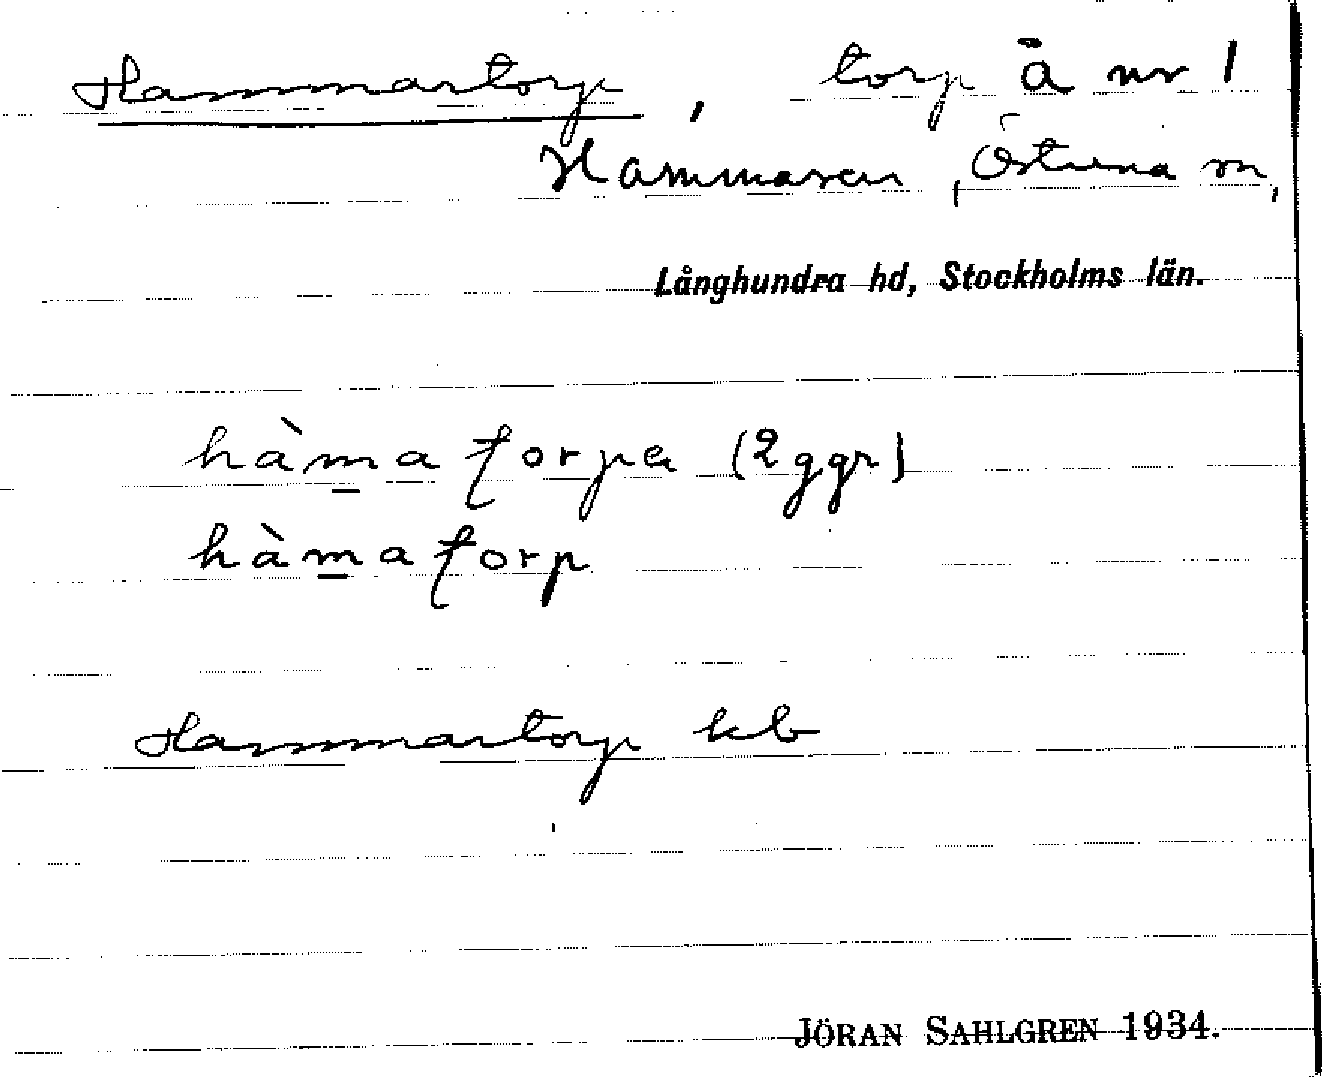 Hammartorp, torp å nr 1
Hammaren, Östuna sn,
Långhundra hd, Stockholms län.
hàm̲aʈorpa (2 ggr)
hàm̲aʈorp
Hammartorp kb
JÖRAN SAHLGREN 1934.